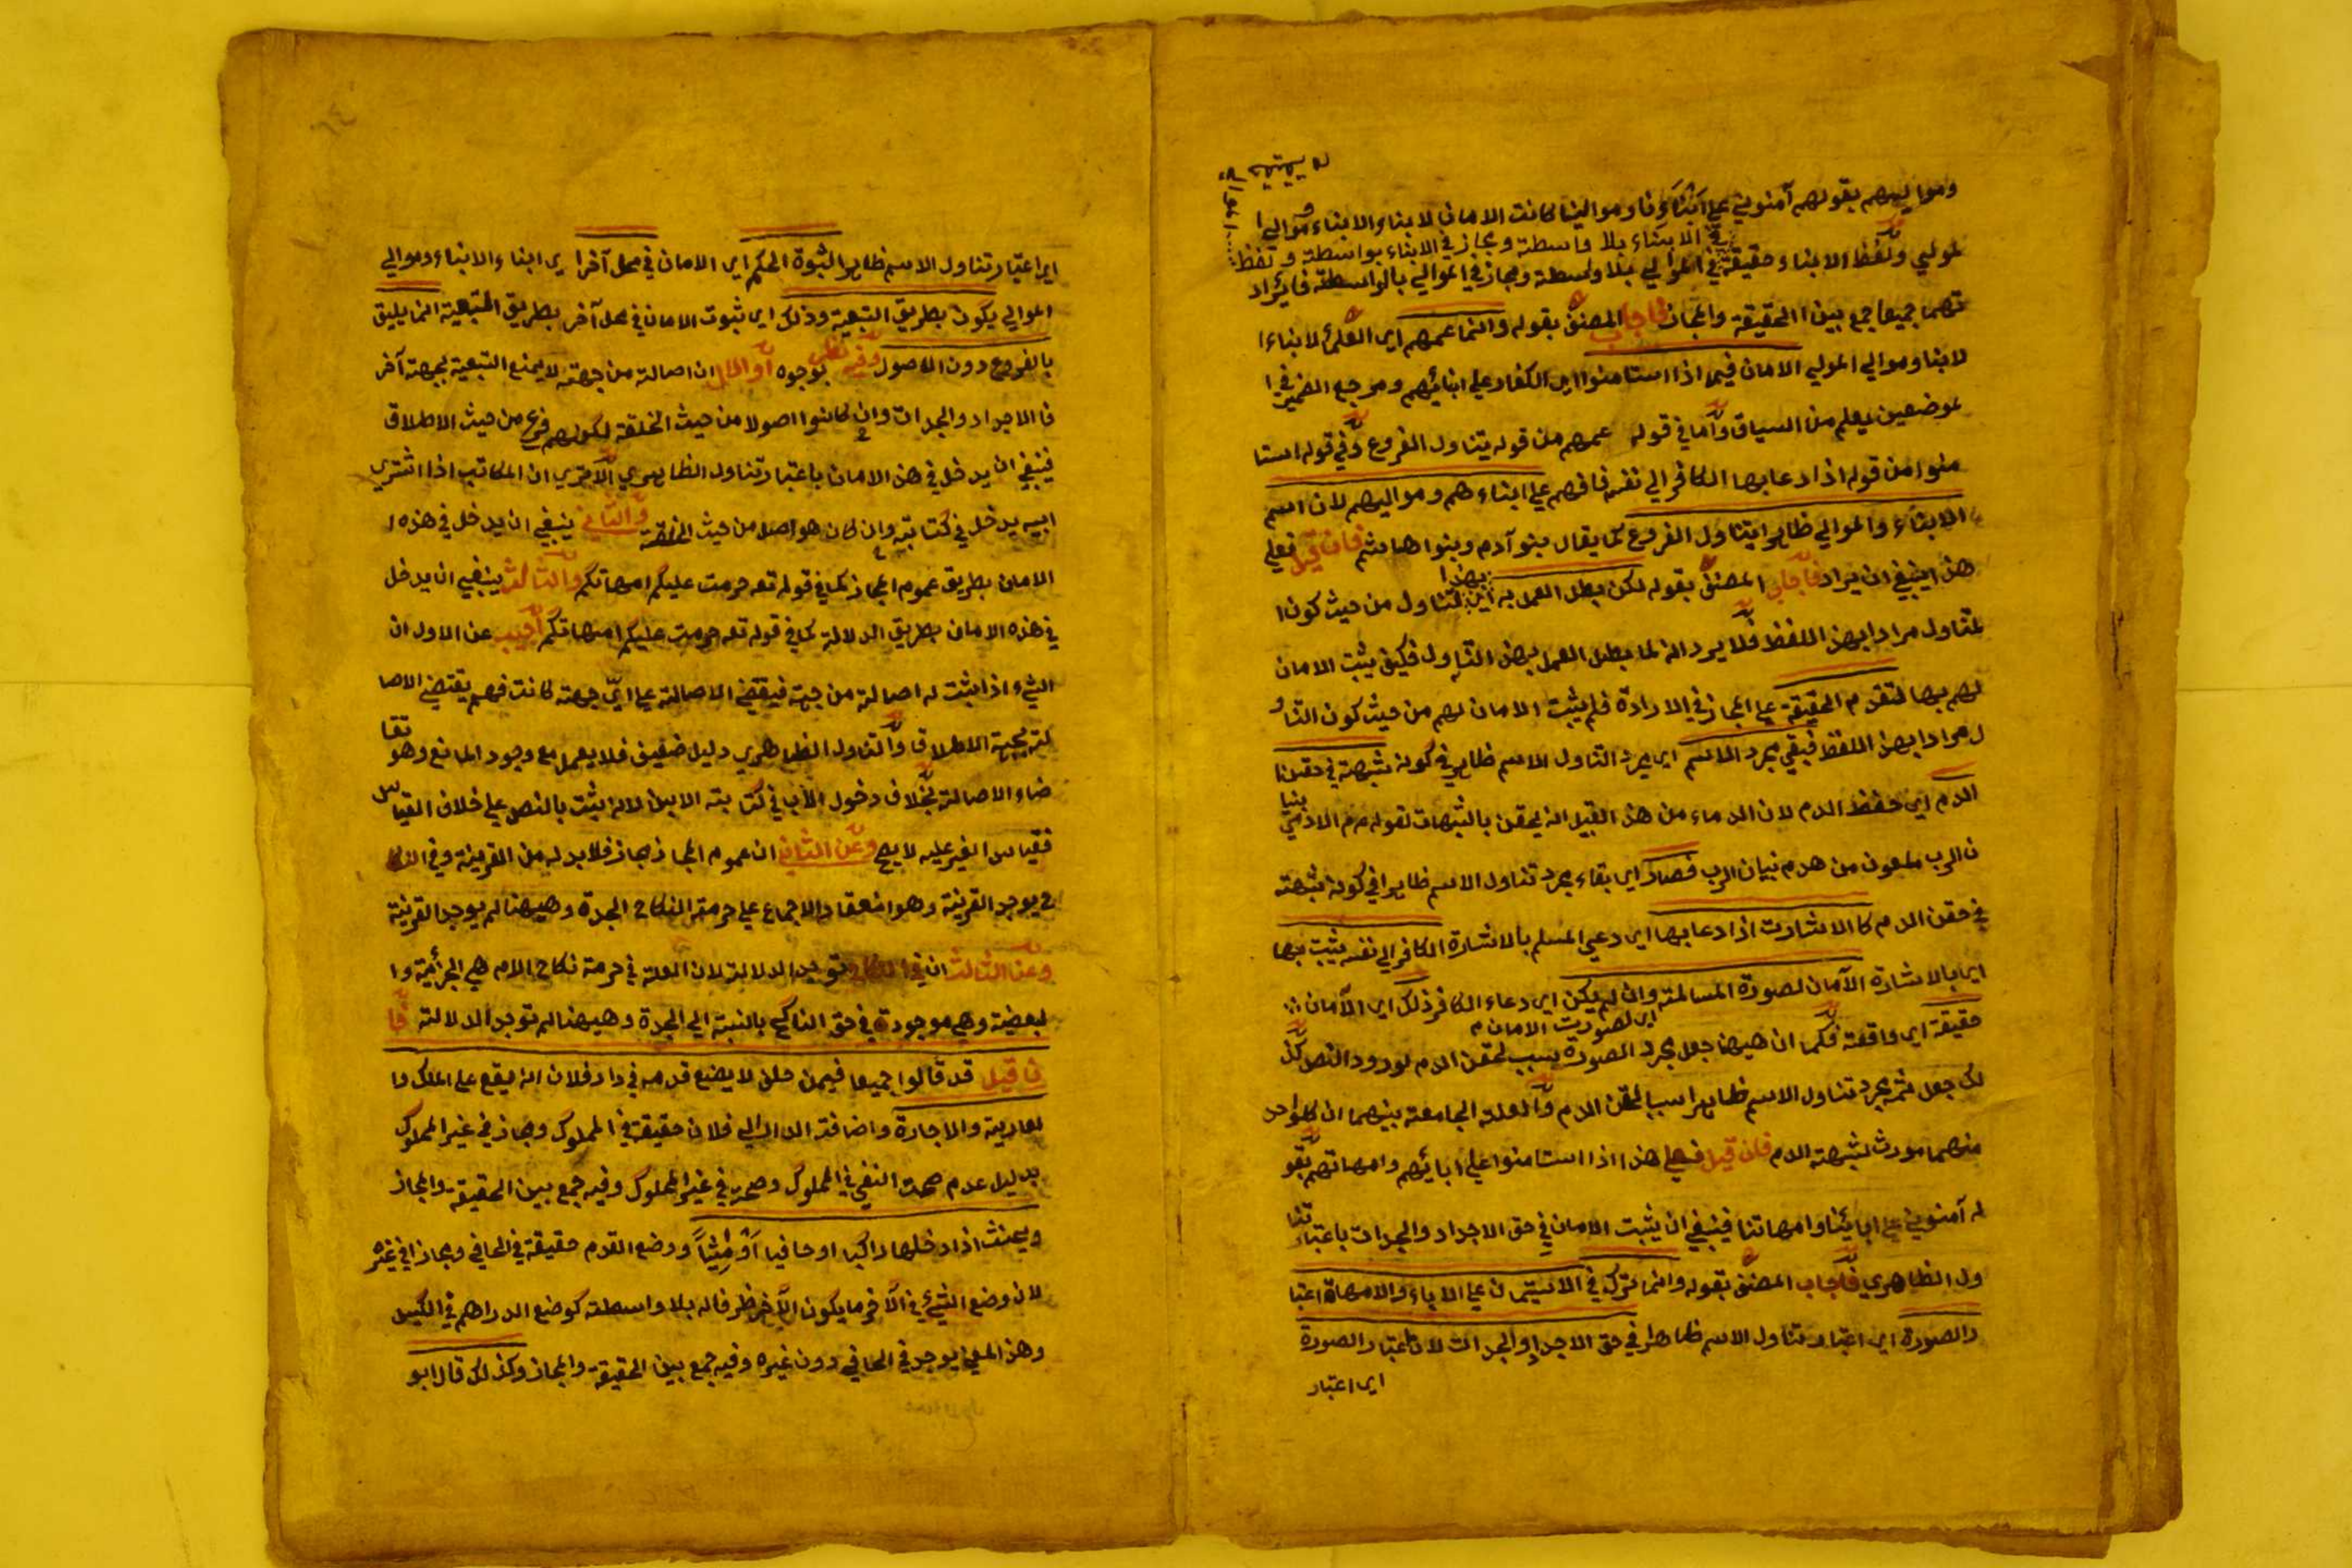 ومواليهم بقولهم آمنوني على ابنائنا وموالينا كانت الامان لابناء الابناء وموالي ا
في الابناء بلا واسطة ومجاز في الابناء بواسطة ولفظ
لموالي ولفظ الابناء حقيقة في الموالي بلا واسطة ومجاز في الموالي بالواسطة فايراد
تهما جميعا جمع بين الحقيقة والمجاز فاجاب المصنف بقوله وانما عمهم اي العلماء لابناء ا
لابنا وموالي الموالي الامان فيما اذا استامنوا اي الكفار على ابنائهم ومرجع الضمير في ا
لموضعين يعلم من السياق واما في قوله عمهم من قوله يتناول الفروع وفي قوله استا
منوا من قوله اذا دعا بها الكافر الى نفسه فافهم على ابناءهم ومواليهم لان اسم
الابناء والموالي ظاهرا يتناول الفروع كما يقال بنو آدم وبنوا هاشم فان قيل فعلى
هذا ينبغي ان يراد فاجاب المصنف بقوله لكن بطل العمل به اي بهذا التناول من حيث كون ا
لتناول مرادا بهذا اللفظ فلا يرد انه لما بطل العمل بهذا التناول فكيف يثبت الامان
لهم بها لتقدم الحقيقة على المجاز في الارادة فلم يثبت الامان لهم من حيث كون التناو
ل مرادا بهذا اللفظ فبقي مجرد الاسم اي مجرد التناول الاسم ظاهر في كونه شبهة في حقنا
الدم اي حفظ الدم لان الدماء من هذا القبيل انه يحقن بالشبهات لقوله عم الادمي بنيا
ن الرب ملعون من هدم بنيان الرب فصار اي بقاء مجرد تناول الاسم ظاهرا في كونه شبهة
في حقن الدم كالاشارت اذا دعا بها اي دعي المسلم بالاشارة الكافر الى نفسه يثبت بها
اي بالاشارة الآمان لصورة المسالمة وان لم يكن اي دعاء الكافر ذلك اي الآمان
اي لصورت الامان م
حقيقة اي واقعة فكما ان ههنا جعل مجرد الصورة سبب لحقن الدم لورود النص كذ
لك جعل ثمه مجرد تناول الاسم ظاهرا سببا لحقن الدم والعلة الجامعة بينهما ان كل واحد
منهما مورث لشبهة الدم فان قيل فعلى هذا اذا استامنوا على ابائهم وامهاتهم بقو
له آمنوني على ابائنا وامهاتنا فينبغي ان يثبت الامان في حق الاجداد والجدات باعتبار تنا
ول الظاهري فاجاب المصنف بقوله وانما ترك في الاستيمان على الاباء والامهات اعتبا
رالصورة اي اعتبار تناول الاسم ظاهرا في حق الاجداد والجدات لان اعتبار الصورة
اي اعتبار
اي اعتبار تناول الاسم ظاهرا لثبوة الحكم اي الامان في محل آخر اي ابناء الابناء وموالي
الموالي يكون بطريق التبعية وذلك اي ثبوت الامان في محل آخر بطريق التبعية انما يليق
بالفروع دون الاصول وفيه نظر بوجوه الاول ان اصالته من جهة لا يمنع التبعية بجهة آخر
فالاجداد والجدات وان كانوا اصولا من حيث الخلقة لكونهم فرع من حيث الاطلاق
فينبغي ان يدخل في هذا الامان باعتبار تناول الظاهري الا ترى ان المكاتب اذا اشترى
ابيه يدخل في كتابته وان كان هو اصل من حيث الخلقة والثاني ينبغي ان يدخل في هذه ا
الامان بطريق عموم المجاز كما في قوله تعه حرمت عليكم امهاتكم والثالث ينبغي ان يدخل
في هذه الامان بطريق الدلالة كما في قوله تعه حرمت عليكم امهاتكم اجيب عن الاول ان
الشيء اذا يثبت له اصالة من جهة فيقتضي الاصالة على اي جهة كانت فهم يقتضي الاصا
لة بجهة الاطلاق والتناول الظاهري دليل ضعيف فلا يعمل مع وجود المانع وهو تقا
ضاء الاصالة بخلاف دخول الأب في كتابته الابن لانه يثبت بالنص على خلاف القياس
فقياس الغير عليه لا يصح وعن الثاني ان عموم المجاز مجاز فلا بد له من القرينة وفي النكا
ح يوجد القرينة وهو انعقاد الاجماع على حرمة النكاح الجدة وههنا لم يوجد القرينة
وعن الثالث ان في النكاح توجد الدلالة لان العلة في حرمة نكاح الام هي الجزئية وا
لبعضة وهي موجودة في حق الناكح بالنسبة الى الجدة وههنا لم توجد الدلالة فا
ن قيل قد قالوا جميعا فيمن حلف لا يضع قدمه في دار فلان انه يقع على الملك وا
لعارية والاجارة واضافة الدار الى فلان حقيقة في المملوك ومجاز في غير المملوك
بدليل عدم صحة النفي في المملوك وصحته في غير المملوك وفيه جمع بين الحقيقة والمجاز
ويحنث اذا دخلها راكبا او حافيا او ماشيا ووضع القدم حقيقة في الحافي ومجاز في غيره
لان وضع الشيء في الآخر ما يكون الآخر ظرفا له بلا واسطة كوضع الدراهم في الكيس
وهذا المعنى يوجد في الحافي دون غيره وفيه جمع بين الحقيقة والمجاز وكذلك قال ابو